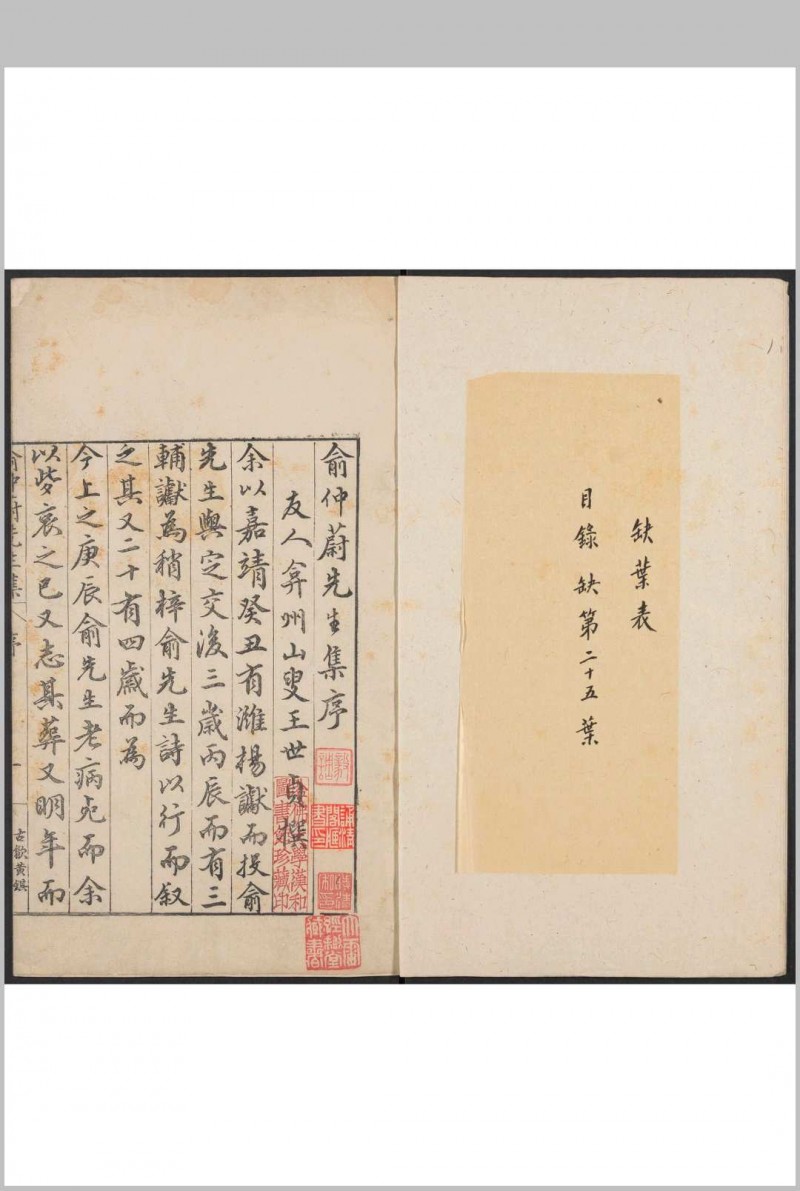 缺葉表
目錄 缺第二十五葉
俞仲蔚先生集序
友人弇州山叟王世貞撰
余以嘉靖癸丑有濰楊讞而投俞
先生與定交後三歲丙辰而有三
輔讞為稍梓俞先生詩以行而叙
之其又二十有四歲而為
今上之庚辰俞先生老病卒而余
以髮哀之已又志其葬又明年而
俞仲蔚先生集 序 一
古歙黃鋘